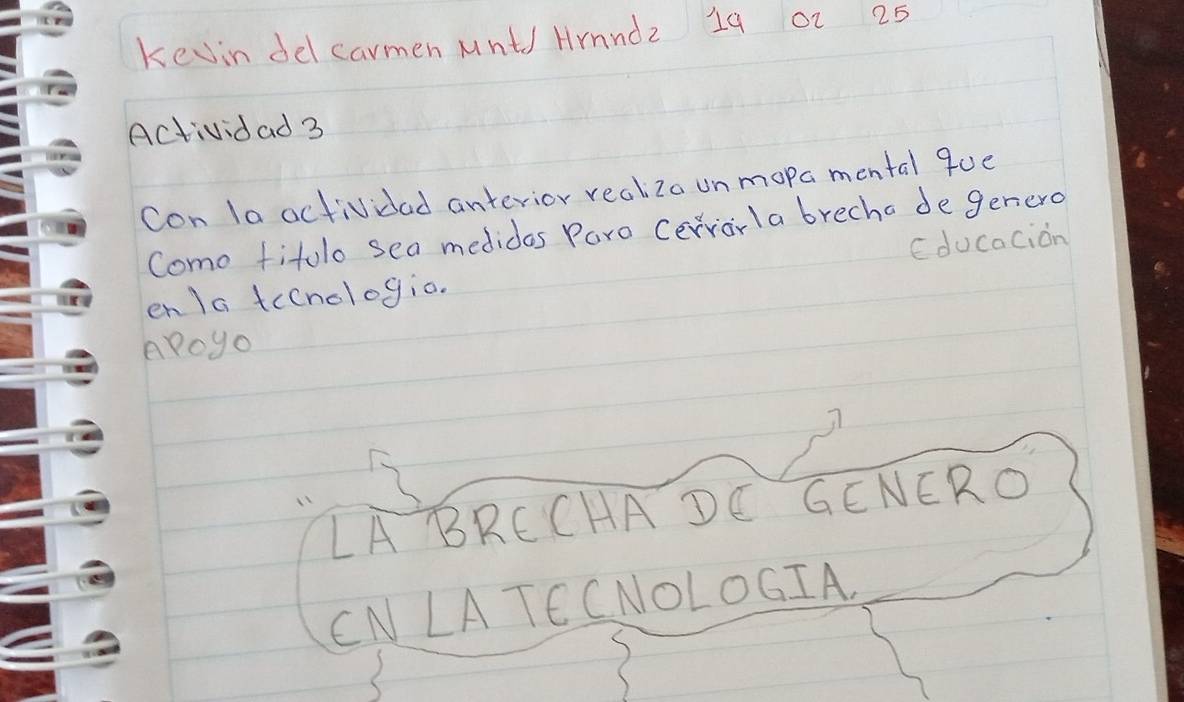 Kevin del carmen Mnts Hrnndz 19 02 25
Actividad 3
Con la actividad anterior realiza un mapa mental que
Como titulo sea medidas Para cerrar la brecha de genero
Educación
en la tecnologia.
APoyo
"LA BRECHA DE GENERO"
EN LA TECNOLOGIA.